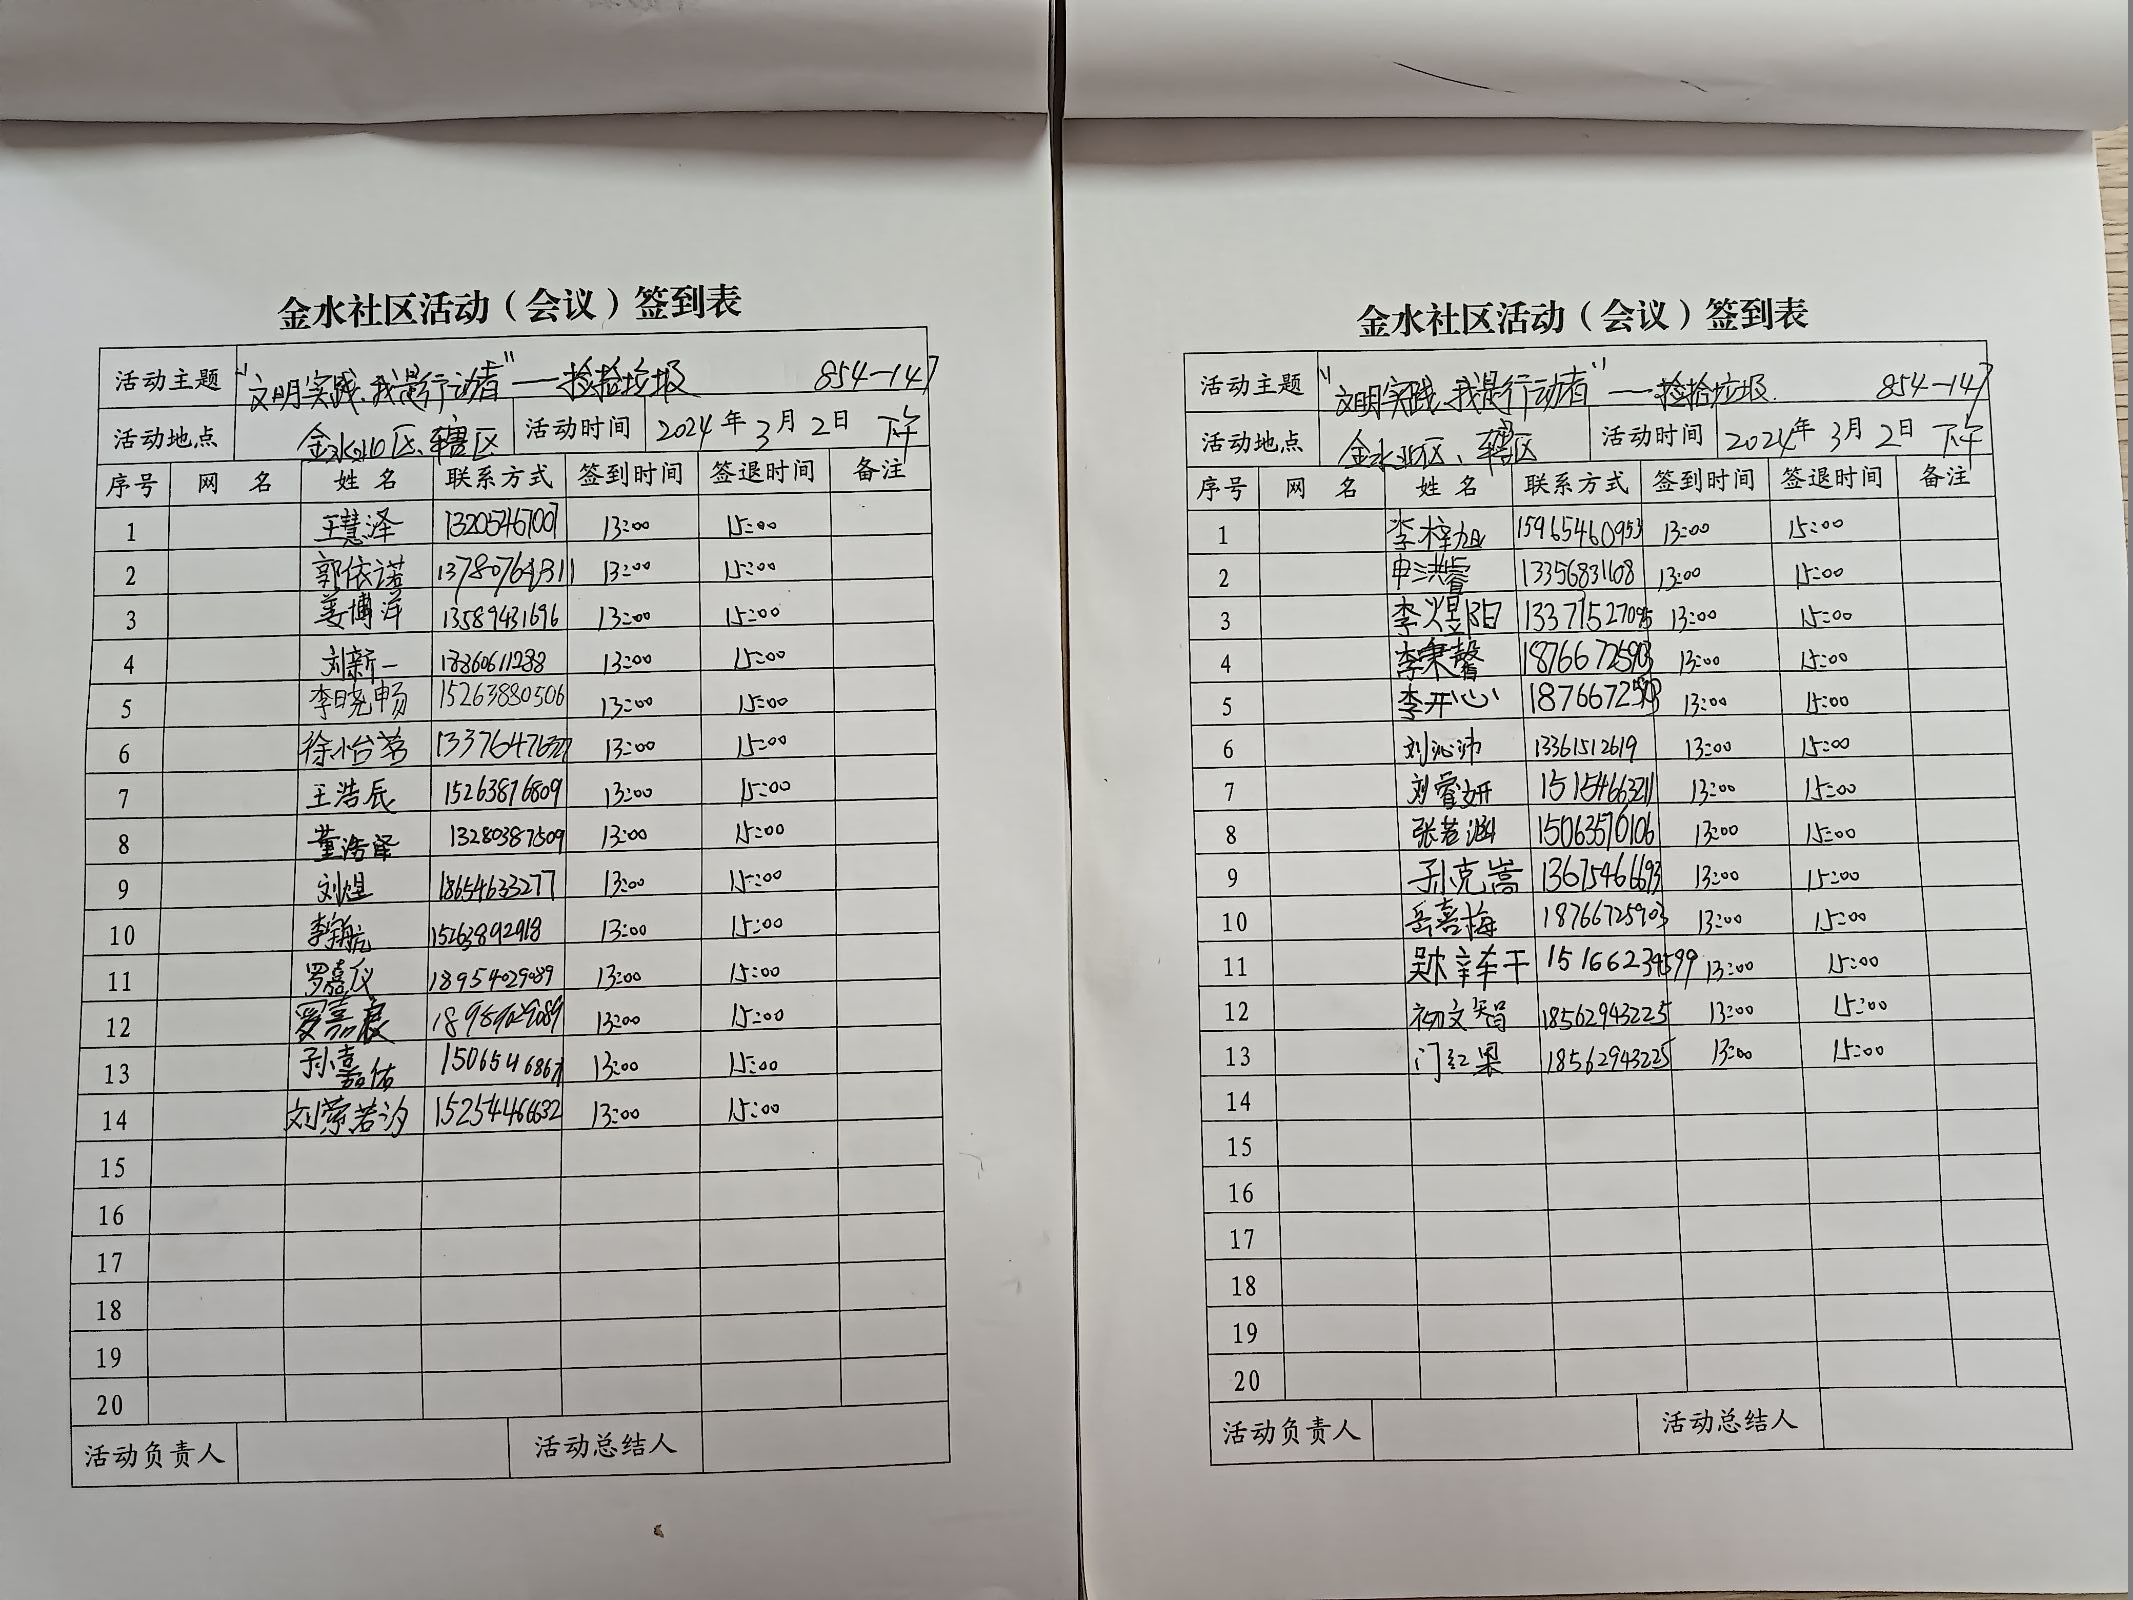 金水社区活动（会议）签到表
活动主题 “文明实践、我是行动者”——捡拾垃圾 854-147
活动地点 金水小区、辖区 活动时间 2024年3月2日 下午
序号 网 名 姓 名 联系方式 签到时间 签退时间 备注
1 王慧泽 13205467007 13:00 15:00
2 郭依诺 13:00 15:00
3 姜博洋 13589431696 13:00 15:00
4 刘新一 13:00 15:00
5 李晓畅 15263880506 13:00 15:00
6 13:00 15:00
7 王浩辰 15263876809 13:00 15:00
8 董浩泽 13280387509 13:00 15:00
9 刘煜 18654633277 13:00 15:00
10 李翰航 15263892918 13:00 15:00
11 罗嘉仪 18954029089 13:00 15:00
12 罗嘉宸 18954029089 13:00 15:00
13 孙嘉佑 13:00 15:00
14 刘荣若汐 15254466632 13:00 15:00
15
16
17
18
19
20
活动负责人 活动总结人
金水社区活动（会议）签到表
活动主题 “文明实践、我是行动者”——捡拾垃圾 854-147
活动地点 金水小区、辖区 活动时间 2024年3月2日 下午
序号 网 名 姓 名 联系方式 签到时间 签退时间 备注
1 李梓旭 15965460953 13:00 15:00
2 申洪睿 13356831108 13:00 15:00
3 李煜阳 13371527095 13:00 15:00
4 李秉馨 18766725903 13:00 15:00
5 李开心 18766725903 13:00 15:00
6 刘沁沛 13361512619 13:00 15:00
7 刘睿妍 15154663211 13:00 15:00
8 张若涵 15063570106 13:00 15:00
9 孙克嵩 13675466693 13:00 15:00
10 岳喜梅 18766725903 13:00 15:00
11 13:00 15:00
12 初文智 18562943225 13:00 15:00
13 门红果 18562943225 13:00 15:00
14
15
16
17
18
19
20
活动负责人 活动总结人